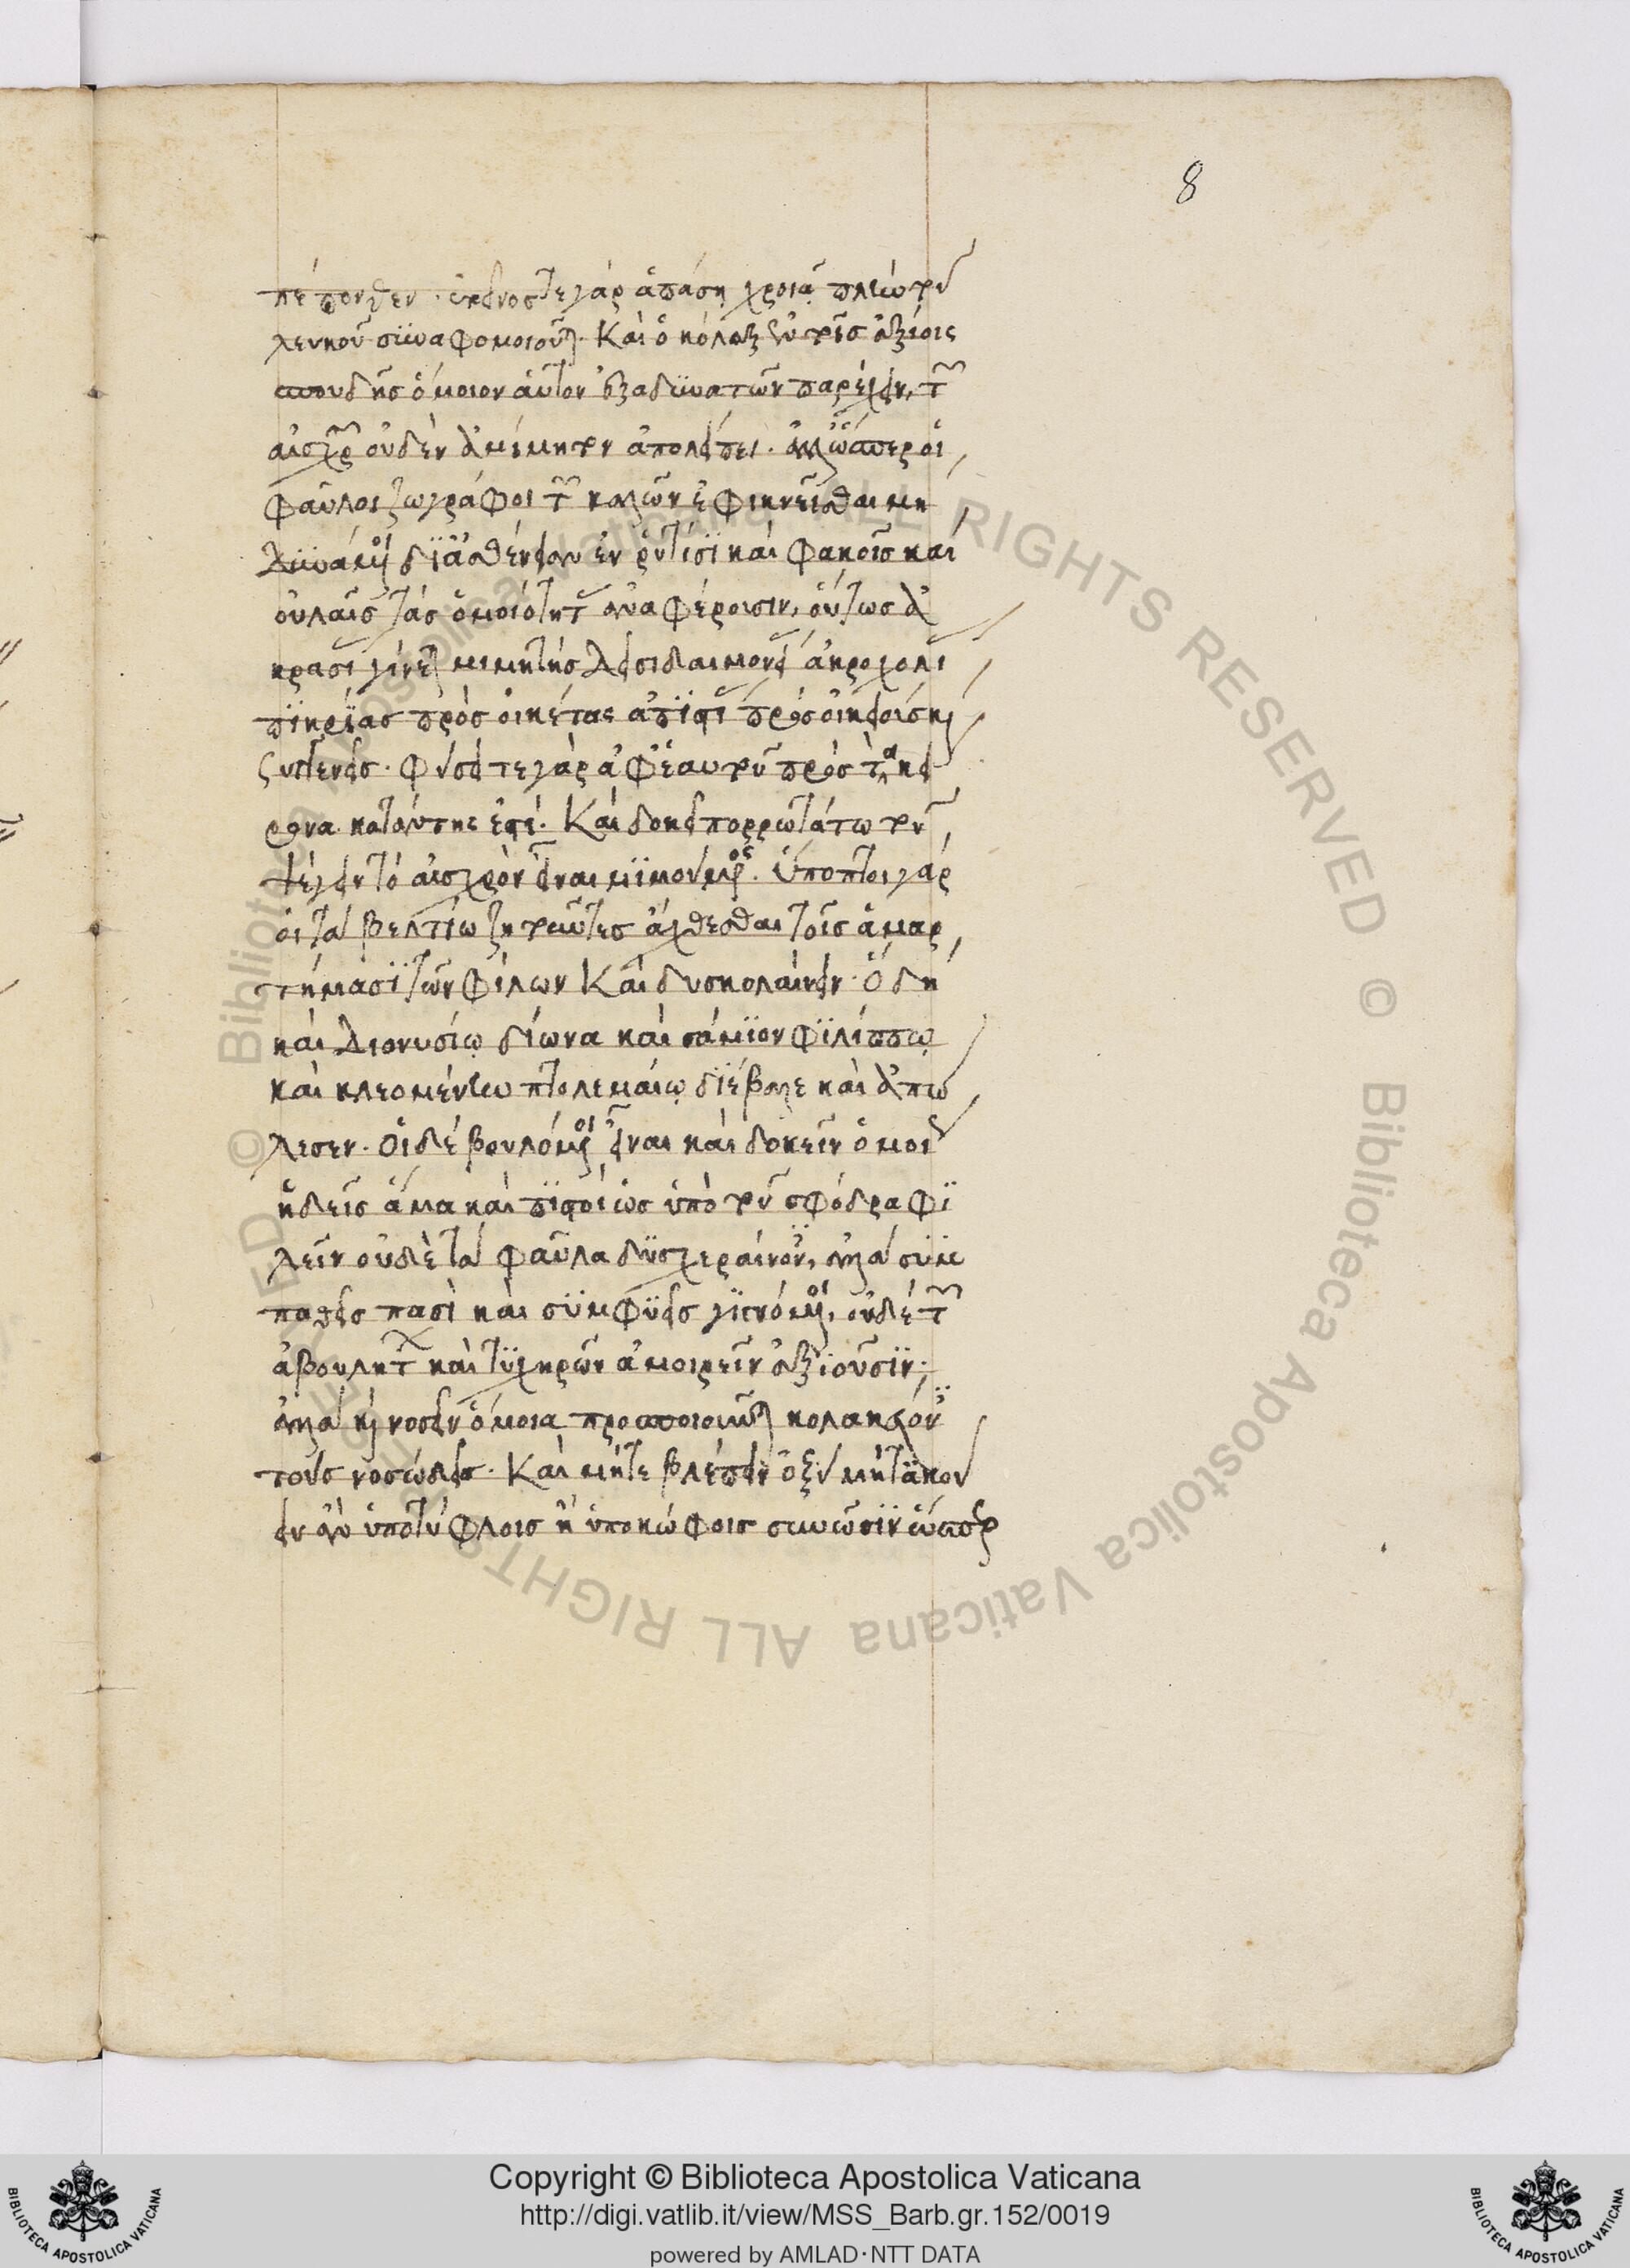 8
πέπονθεν. ἐκεῖνος τε γὰρ ἁπάση χροιᾷ πλὴν τοῦ
λευκοῦ συναφομοιοῦται. Καὶ ὁ κόλαξ ἐν τοῖς ἀξίοις
σπουδῆς ὅμοιον αὑτὸν ἐξαδυνατῶν παρέχειν, τῶν
αἰσχρῶν οὐδὲν ἀμίμητον ἀπολείπει. ἀλλ' ὥσπερ οἱ
φαῦλοι ζωγράφοι τῶν καλῶν ἐφικνεῖσθαι μὴ
δυνάμενοι δι' ἀσθένειαν ἐν ῥυτίσι καὶ φακοῖς καὶ
οὐλαῖς τὰς ὁμοιότητας ἀναφέρουσιν, οὕτως ἀ
κρασί γίνεται μιμητὴς δεισιδαιμονί ἀκροχολί
πικρίας πρὸς οἰκέτας ἀπιστί πρὸς οἰκείους καὶ
συγγενεῖς. φύσει τε γὰρ ἀφ' ἑαυτοῦ πρὸς τὰ χεί
ρονα κατάντης ἐστί. Καὶ δοκεῖ πορρωτάτω τοῦ
ψέγειν τὸ αἰσχρὸν εἶναι μιμούμενος. ὕποπτοι γὰρ
οἱ τὰ βελτίω ζητοῦντες ἄχθεσθαι τοῖς ἁμαρ
τήμασι τῶν φίλων Καὶ δυσκολαίνειν. ὃ δὴ
καὶ Διονυσίῳ δίωνα καὶ σάμιον φιλίππῳ
καὶ κλεομένην πτολεμαίῳ διέβαλε καὶ ἀπώ
λεσεν. Οἱ δὲ βουλόμενοι εἶναι καὶ δοκεῖν ὁμοῦ
ἡδεῖς ἅμα καὶ πιστοί ὡς ὑπὸ τοῦ σφόδρα φι
λεῖν οὐδὲ τὰ φαῦλα δυσχεραίνον, ἀλλὰ συμ
παθεῖς πᾶσι καὶ συμφυεῖς γινόμενοι, οὐδὲ τῶν
ἀβουλήτων καὶ τυχηρῶν ἀμοιρεῖν ἀξιοῦσιν;
ἀλλὰ καὶ νοσεῖν ὅμοια προσποιοῦνται κολακεύον
τοὺς νοσώδεις. Καὶ μήτε βλέπειν ὀξὺ μήτ' ἀκού
ειν ἂν ὑποτύφλοις ἢ ὑποκώφοις συνῶσιν ὥσπερ
© Biblioteca Apostolica Vaticana ALL RIGHTS RESERVED © Biblioteca Apostolica Vaticana ALL RIGHTS RESERVED
Copyright © Biblioteca Apostolica Vaticana
http://digi.vatlib.it/view/MSS_Barb.gr.152/0019
powered by AMLAD·NTT DATA
BIBLIOTECA APOSTOLICA VATICANA
BIBLIOTECA APOSTOLICA VATICANA